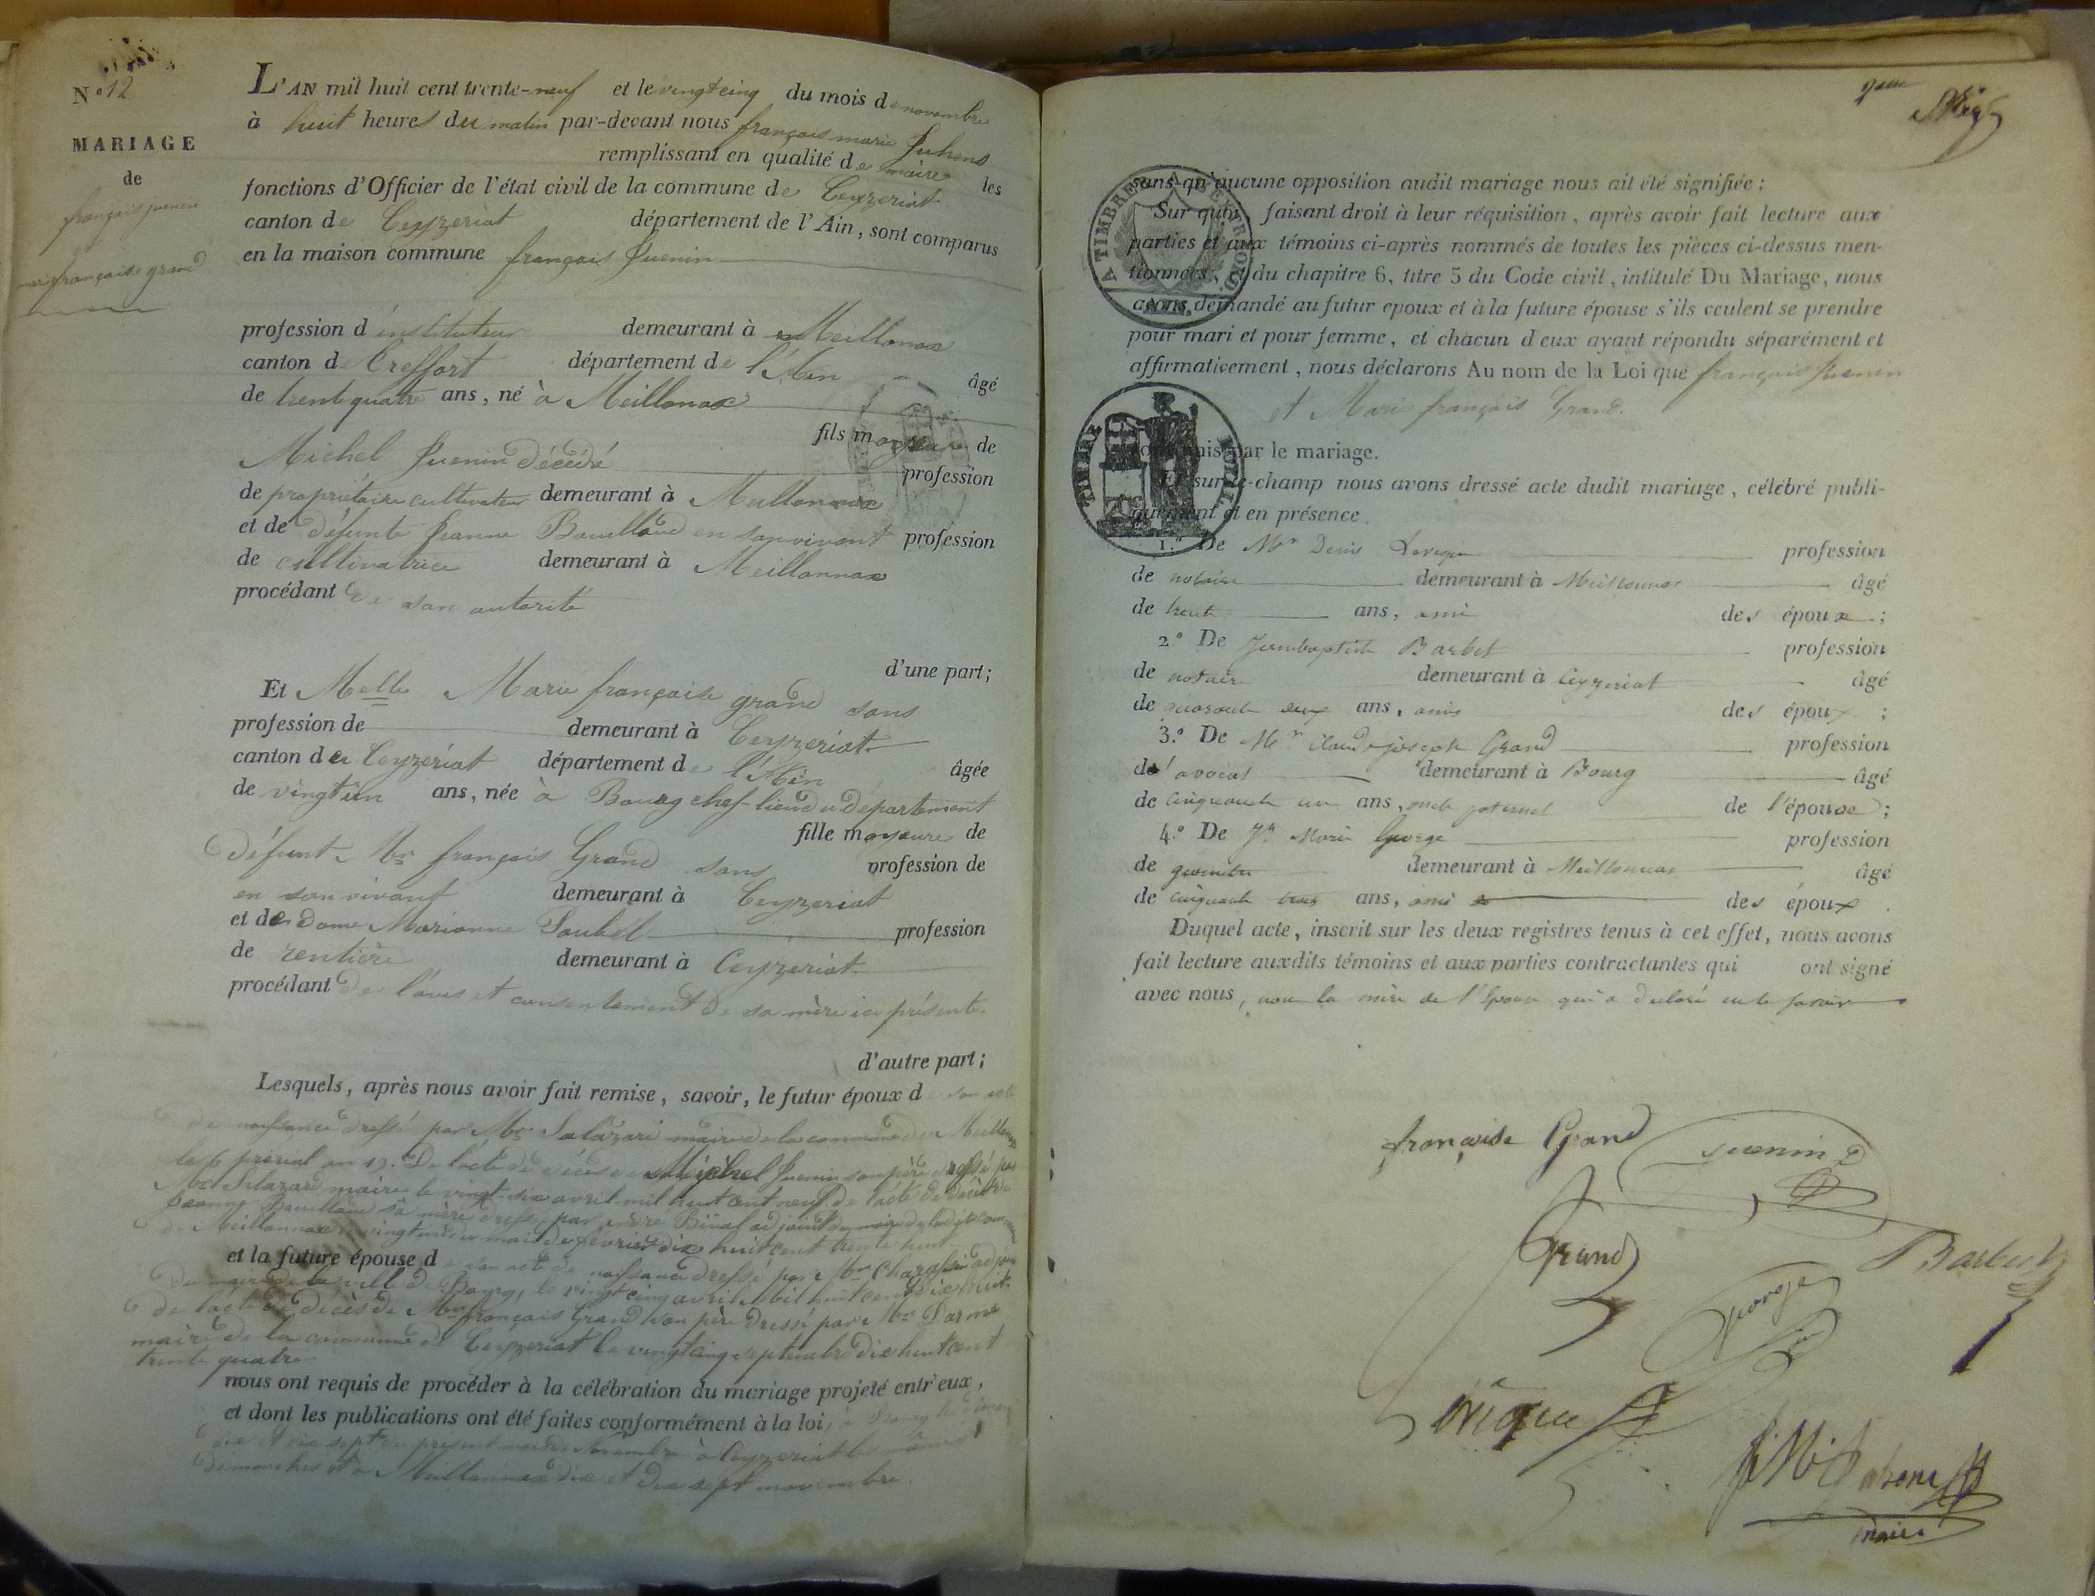 N° 12
MARIAGE
de
françois juenin
et
marie françoise grand
L'AN mil huit cent trente-neuf et le vingt cinq du mois de novembre
à huit heures du matin par-devant nous françois marie
remplissant en qualité de maire les
fonctions d'Officier de l'état civil de la commune de Ceyzeriat
canton de Ceyzeriat département de l'Ain, sont comparus
en la maison commune françois Juenin
profession d'instituteur demeurant à Meillonax
canton de Treffort département de l'Ain âgé
de trente quatre ans, né à Meillonax
fils majeur de
Michel Juenin décédé profession
de propriétaire cultivateur demeurant à Meillonnax
et de défunte Jeanne Bouilloud en son vivant profession
de cultivatrice demeurant à Meillonnax
procédant de son autorité
d'une part;
Et Melle Marie françoise grand sans
profession de demeurant à Ceyzeriat
canton de Ceyzériat département de l'Ain âgée
de vingt un ans, née à Bourg chef-lieu du departement
fille mayeure de
défunt Mr françois Grand sans profession de
en son vivant demeurant à Ceyzeriat
et de dame Marianne profession
de rentière demeurant à Ceyzeriat
procédant de l'avis et consentement de sa mère ici présente.
d'autre part;
Lesquels, après nous avoir fait remise, savoir, le futur époux de son acte
de naissance dressé par Mr Salazard maire de la commune de Meillonnax
le 6 prerial an 13. De l'acte de décès de Michel Juenin son père dressé par
Mr Salazard maire le vingt-six avril mil huit cent neuf de l'acte de décès de
Jeanne Bouilloud sa mère dressé par andré adjoint au maire de la dite commune
de Meillonnax le vingt un du mois de fevrier dix huit cent trente huit
et la future épouse de son acte de naissance dressé par Mr adjoint
du maire de la ville de Bourg, le vingt cinq avril mil huit cent dix huit
de l'acte de décès de Mr françois Grand son père dressé par Mr
maire de la commune de Ceyzeriat le vingt cinq septembre dix huit cent
trente quatre
nous ont requis de procéder à la célébration du mariage projeté entr'eux,
et dont les publications ont été faites conformément à la loi, à Bourg le
dix et dix sept du present mois de Novembre à Ceyzeriat les mêmes
dimanches et à Meillonnax dix et dix sept novembre.
sans qu'aucune opposition audit mariage nous ait été signifiée;
Sur quoi, faisant droit à leur réquisition, après avoir fait lecture aux
parties et aux témoins ci-après nommés de toutes les pièces ci-dessus men-
tionnées, et du chapitre 6, titre 5 du Code civil, intitulé Du Mariage, nous
avons demandé au futur epoux et à la future épouse s'ils veulent se prendre
pour mari et pour femme, et chacun d'eux ayant répondu séparément et
affirmativement, nous déclarons Au nom de la Loi que françois Juenin
et Marie françoise Grand.
sont unis par le mariage.
Et sur-le-champ nous avons dressé acte dudit mariage, célébré publi-
quement et en présence
1.° De Mr Denis profession
de notaire demeurant à Meillonnas âgé
de trente ans, ami des époux;
2.° De Jean baptiste Barbet profession
de notaire demeurant à Ceyzeriat âgé
de quarante deux ans, amis des époux;
3.° De Mr Claude joseph Grand profession
d'avocat demeurant à Bourg âgé
de cinquante un ans, oncle paternel de l'épouse;
4.° De Jh Marie George profession
de demeurant à Meillonnas âgé
de cinquante trois ans, ami des époux.
Duquel acte, inscrit sur les deux registres tenus à cet effet, nous avons
fait lecture auxdits témoins et aux parties contractantes qui ont signé
avec nous, non la mère de l'Epouse qui a declaré ne le savoir
A TIMBRER A L'EXTRORD.
TIMBRE ROYAL
françoise Grand
Juenin
Grand
Barbet
George
maire